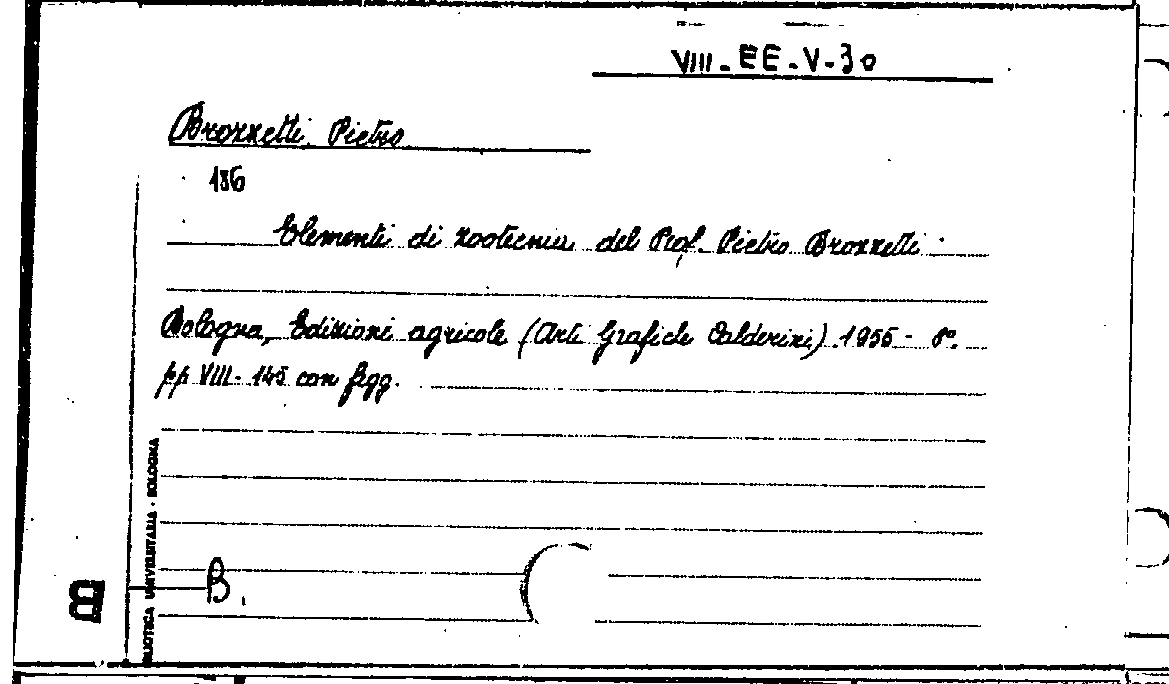 VIII-EE-V-30
Brozzetti, Pietro
186
Elementi di zootecnia del Prof. Pietro Brozzetti.
Bologna, Edizioni agricole (Arti Grafiche Calderini) 1955 - 8°.
pp VIII-145 con figg.
B.
B
BLIOTECA UNIVERSITARIA - BOLOGNA